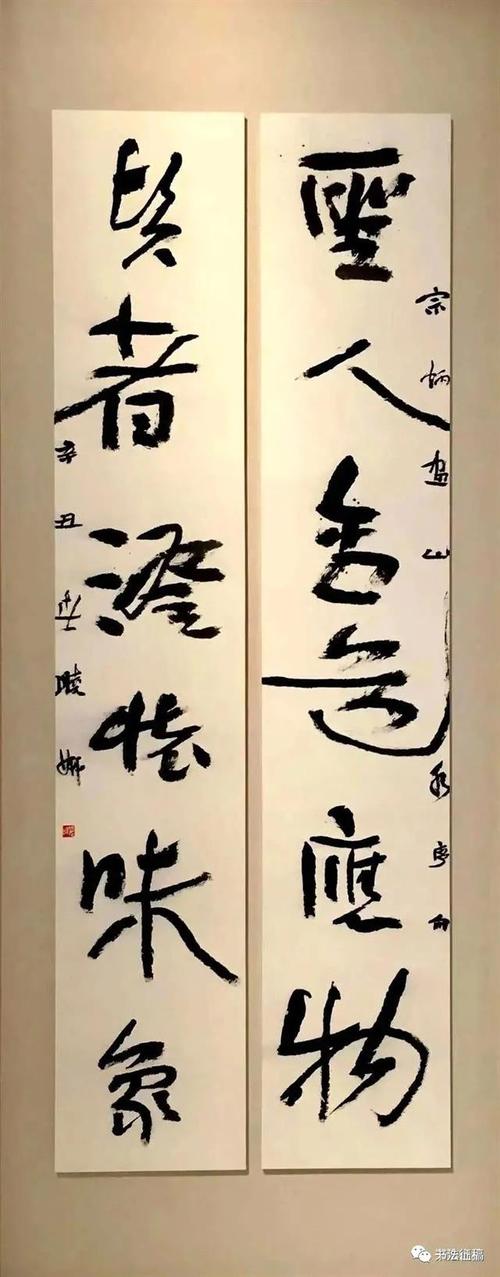 聖人含道應物
宗炳画山水序句
賢者澄懷味象
辛丑
书法征稿